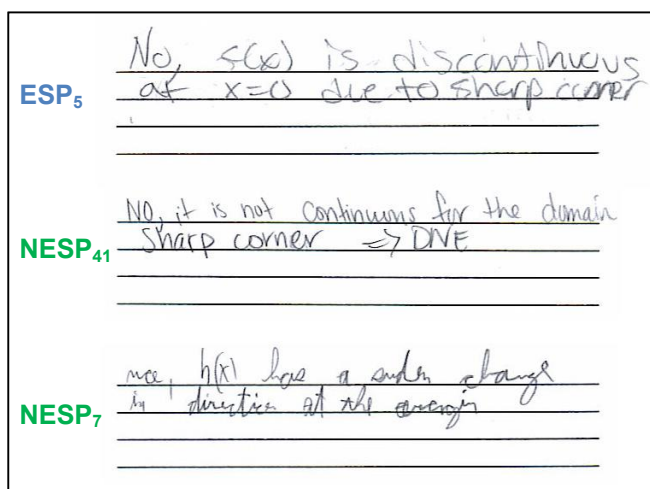 ESP₅
No, s(x) is discontinuous
at x=0 due to sharp corner
NESP₄₁
NO, it is not continuous for the domain
sharp corner => DNE
NESP₇
h(x) has a suden change
in direction at the